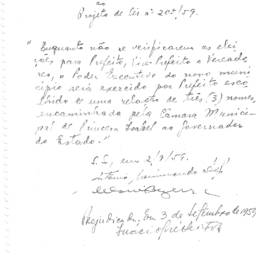 ao
Projeto de Lei nº 205/59.
" Enquanto não se verificarem as elei-
ções para Prefeito, Vice Prefeito e Vereado
res, o Poder Executivo do novo muni
cípio será exercido por Prefeito esco
lhido de uma relação de três (3) nomes,
encaminhada pela Câmara Munici-
pal de Princesa Isabel ao Governador
do Estado."
S.S., em 2/9/59.
Em 3 de setembro de 1959